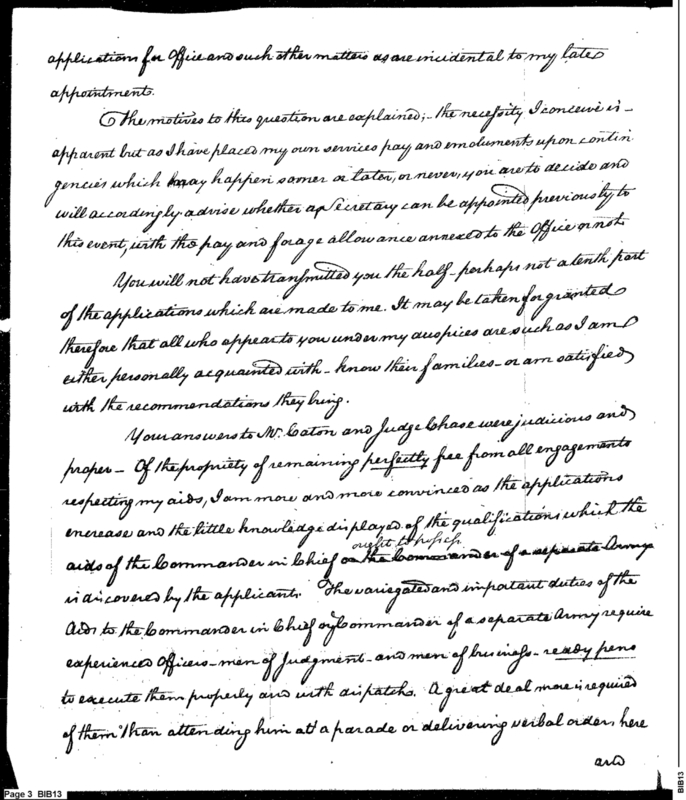 applications for Office and such other matters as are incidental to my late
appointment.
The motives to this question are explained;- the necessity I conceive is-
apparent but as I have placed my own services pay and emoluments upon contin
gencies which may happen sooner or later, or never, you are to decide and
will accordingly advise whether a Secretary can be appointed previously to
this event, with the pay and forage allowance annexed to the Office or not.
You will not have transmitted you the half- perhaps not a tenth part
of the applications which are made to me. It may be taken for granted
therefore that all who appear to you under my auspices are such as I am
either personally acquainted with- know their families- or am satisfied
with the recommendations they bring.
Your answers to Mr. Caton and Judge Chase were judicious and
proper- Of the propriety of remaining perfectly free from all engagements
respecting my aids, I am more and more convinced as the applications
encrease and the little knowledge displayed of the qualifications which the
ought to possess
aids of the Commander in Chief or the Commander of a separate Army
is discovered by the applicants. The variegated and important duties of the
Aids to the Commander in Chief or Commander of a separate Army require
experienced Officers- men of Judgment- and men of business- ready pens
to execute them properly and with dispatch. A great deal more is required
of them than attending him at a parade or delivering verbal orders here
and
Page 3 BIB13
BIB13